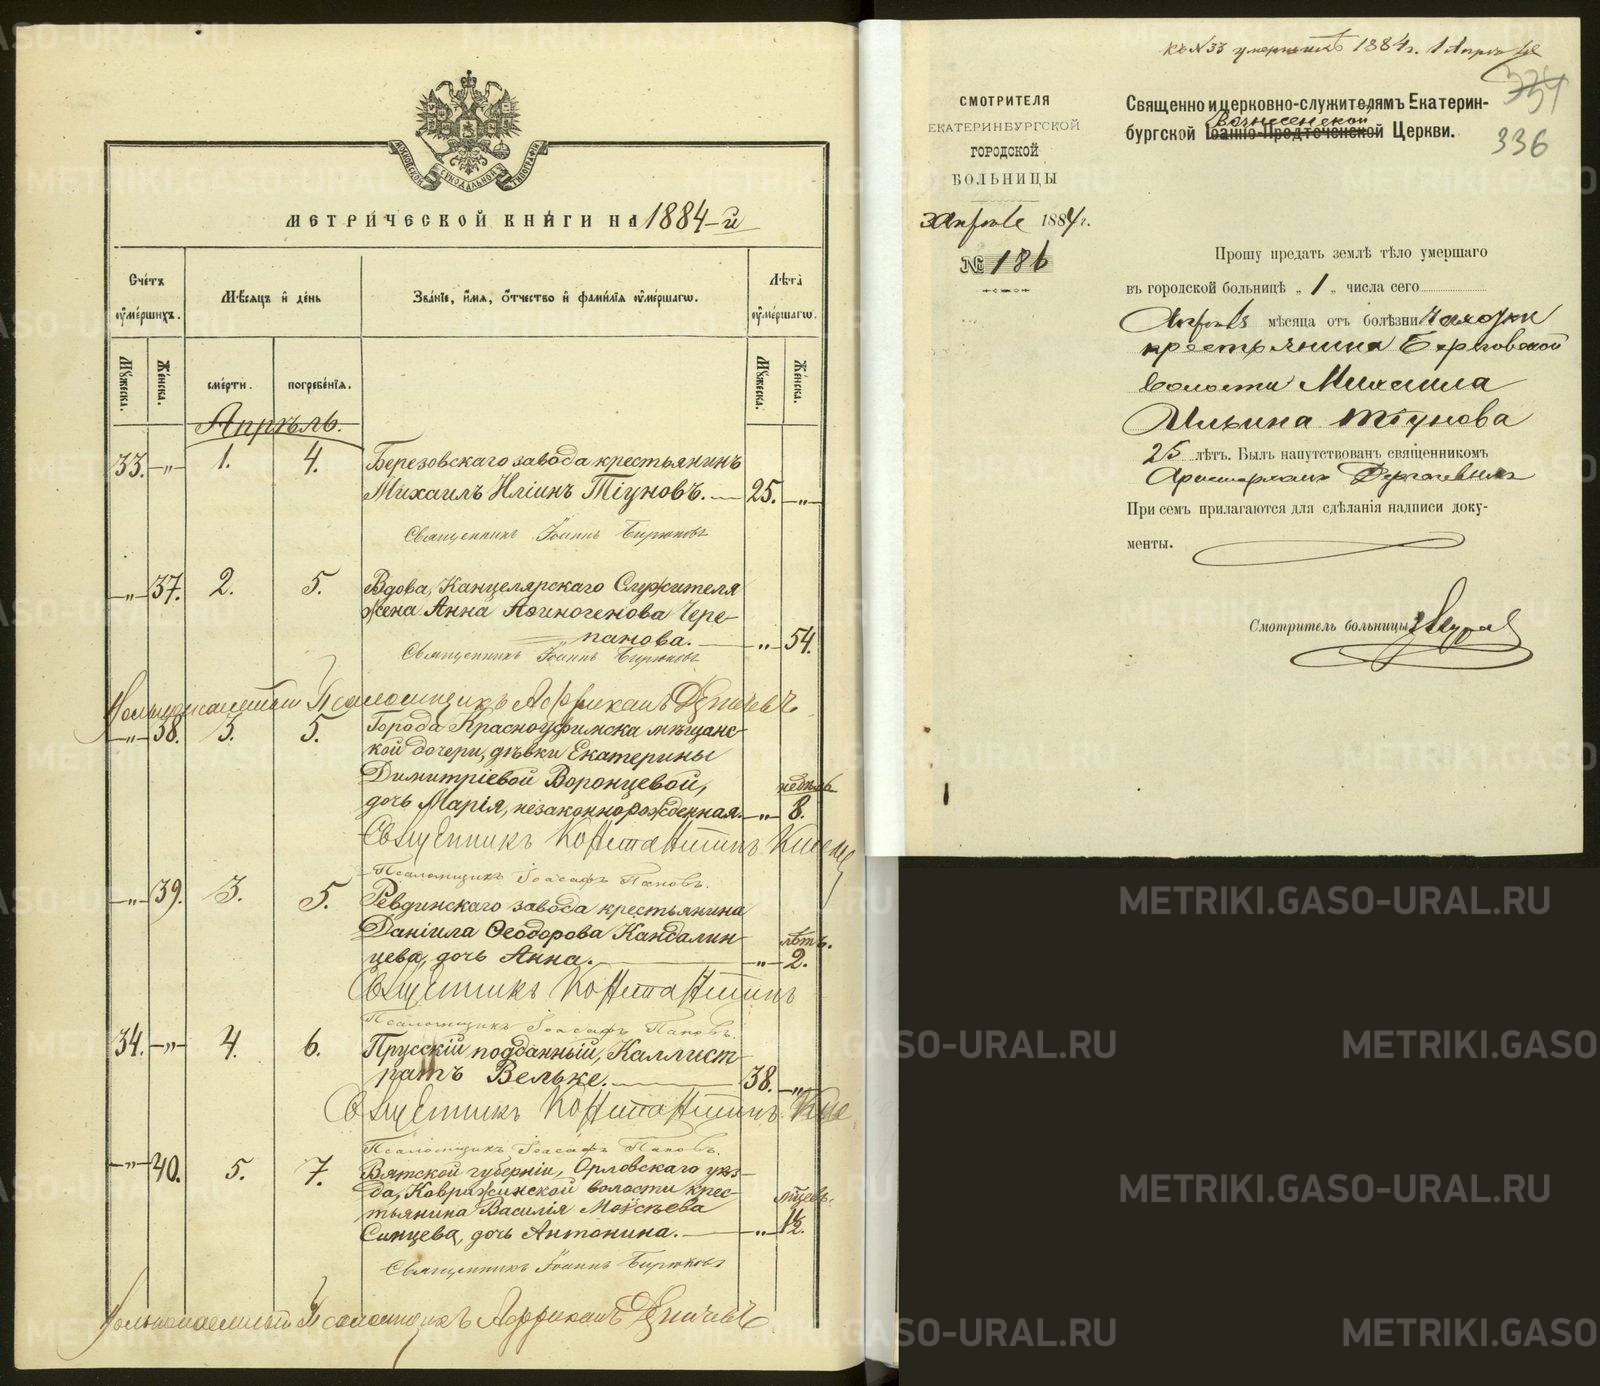 МОСКОВСКОЙ СѴНОДАЛЬНОЙ ТИПОГРАФІИ
МЕТРИ́ЧЕСКОЙ КНИ́ГИ НА 1884-й
Сче́тъ ᲂу҆ме́ршихъ.
Мѣ́сяцъ и҆ де́нь
Зва́нїе, и҆́мя, ѻ҆́тчество и҆ фами́лїя ᲂу҆ме́ршагѡ.
Лѣ́та ᲂу҆ме́ршагѡ.
Мꙋ́жеска.
Же́нска.
сме́рти.
погребе́нїя.
Мꙋ́жеска.
Же́нска.
Апрѣль.
33. „ 1. 4. Березовскаго завода крестьянинъ
Михаилъ Иліинъ Тіуновъ. 25. „
Священникъ Іоаннъ Бирюковъ
„ 37. 2. 5. Вдова, Канцелярскаго Служителя
жена Анна Аѳиногенова Чере-
панова. „ 54.
Священникъ Іоаннъ Бирюковъ
Вольнонаемный Псаломщикъ Африканъ
„ 38. 3. 5. Города Красноуфимска мѣщанс-
кой дочери, дѣвки Екатерины
Димитріевой Воронцевой, недѣль
дочь Марія, незаконнорожденная. „ 8.
Священникъ Константинъ
Псаломщикъ Іоасафъ Паповъ.
„ 39. 3. 5. Ревдинскаго завода крестьянина
Даніила Ѳеодорова Кандалин- лѣтъ.
цева, дочь Анна. „ 2.
Священникъ Константинъ
Псаломщикъ Іоасафъ Паповъ.
34. „ 4. 6. Прусскій подданный, Каллист-
ратъ Вельке. 38. „
Священникъ Константинъ
Псаломщикъ Іоасафъ Паповъ.
„ 40. 5. 7. Вятской губерніи, Орловскаго уѣз-
да, Ковражинской волости крес- мѣцевъ.
тьянина Василія Моѵсѣева
Синцева, дочь Антонина. „ 1½.
Священникъ Іоаннъ Бирюковъ
Вольнонаемный Псаломщикъ Африканъ
къ №33 умершихъ 1884 г. 1 Апрѣля
334
336
СМОТРИТЕЛЯ
ЕКАТЕРИНБУРГСКОЙ
ГОРОДСКОЙ
БОЛЬНИЦЫ
3 Апрѣля 1884 г.
№ 186
Священно и церковно-служителямъ Екатерин-
Вознесенской
бургской Іоанно-Предтеченской Церкви.
Прошу предать землѣ тѣло умершаго
въ городской больницѣ „ 1 „ числа сего
Апрѣля мѣсяца отъ болѣзни Чахотки
крестьянина Березовской
волости Михаила
Ильина Тіунова
25 лѣтъ. Былъ напутствованъ священникомъ
При семъ прилагаются для сдѣланія надписи доку-
менты.
Смотритель больницы
METRIKI.GASO-URAL.RU